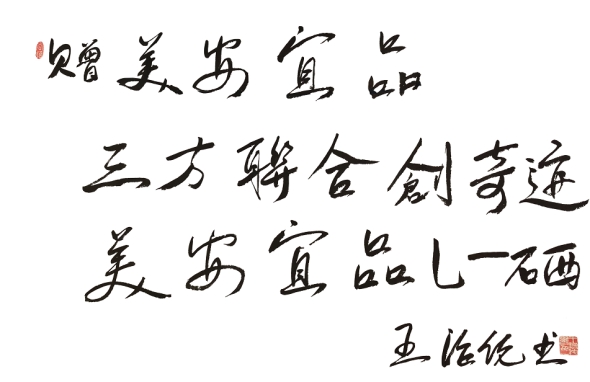 赠美安宜品
三方聯合創奇迹
美安宜品一硒
王治统书